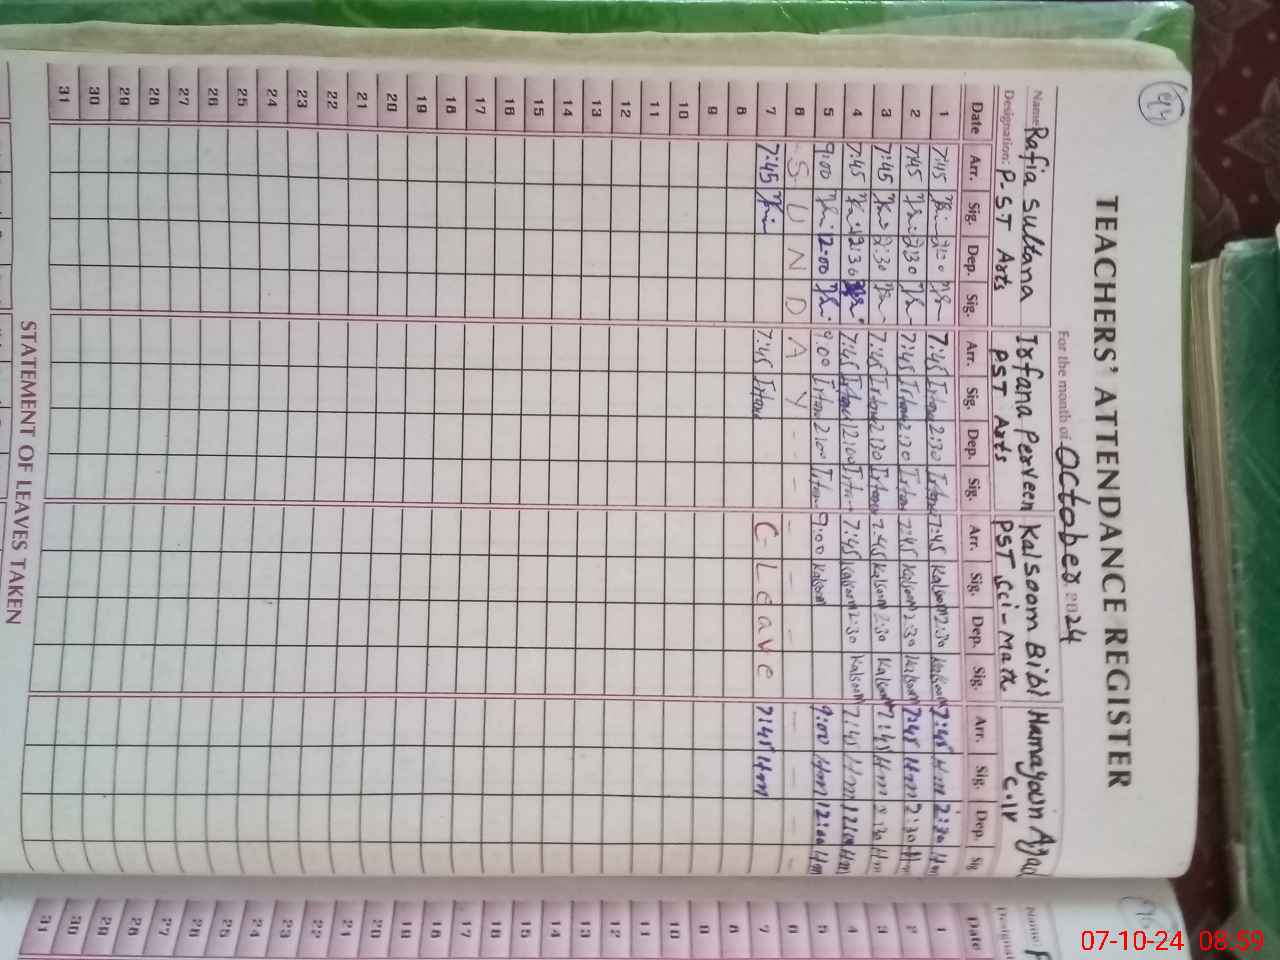 94
TEACHERS' ATTENDANCE REGISTER
For the month of October 2024
Name Rafia Sultana Irfana Perveen Kalsoom Bibi Hamayoun
Designation: P-ST Arts PST Arts PST Sci-Math C.IV
Date Arr. Sig. Dep. Sig. Arr. Sig. Dep. Sig. Arr. Sig. Dep. Sig. Arr. Sig. Dep. Sig
1 7:45 7:45 2:30 7:45 Kalsoom 2:30 Kalsoom 7:45 Hm 2:30 Hm
2 7:45 2:30 7:45 2:30 7:45 Kalsoom 2:30 Kalsoom 7:45 Hm 2:30 Hm
3 7:45 2:30 7:45 2:30 7:45 Kalsoom 2:30 Kalsoom 7:45 Hm 2:30 Hm
4 7:45 7:45 12:00 7:45 Kalsoom 2:30 Kalsoom 7:45 Hm 12:00 Hm
5 9:00 12:00 9:00 2:00 9:00 Kalsoom 9:00 Hm 12:00 Hm
6 S U N D A Y - - - - - - - -
7 7:45 7:45 C-Leave 7:45 Hm
8
9
10
11
12
13
14
15
16
17
18
19
20
21
22
23
24
25
26
27
28
29
30
31
STATEMENT OF LEAVES TAKEN
Name
Date
1
2
3
4
5
6
7
8
9
10
11
12
13
14
15
16
17
18
19
20
21
22
23
24
25
26
27
28
29
30
31
07-10-24 08:59